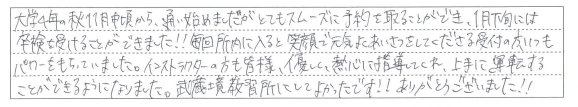 大学4年の秋11月中頃から、通い始めましたがとてもスムーズに予約を取ることができ、1月下旬には
卒検を受けることができました!!毎回所内に入ると笑顔で元気よくあいさつをしてくださる受付の方にいつも
パワーをもらっていました。インストラクターの方も皆様、優しく、熱心に指導してくれ、上手に運転する
ことができるようになりました。武蔵境教習所にしてよかったです!!ありがとうございました!!